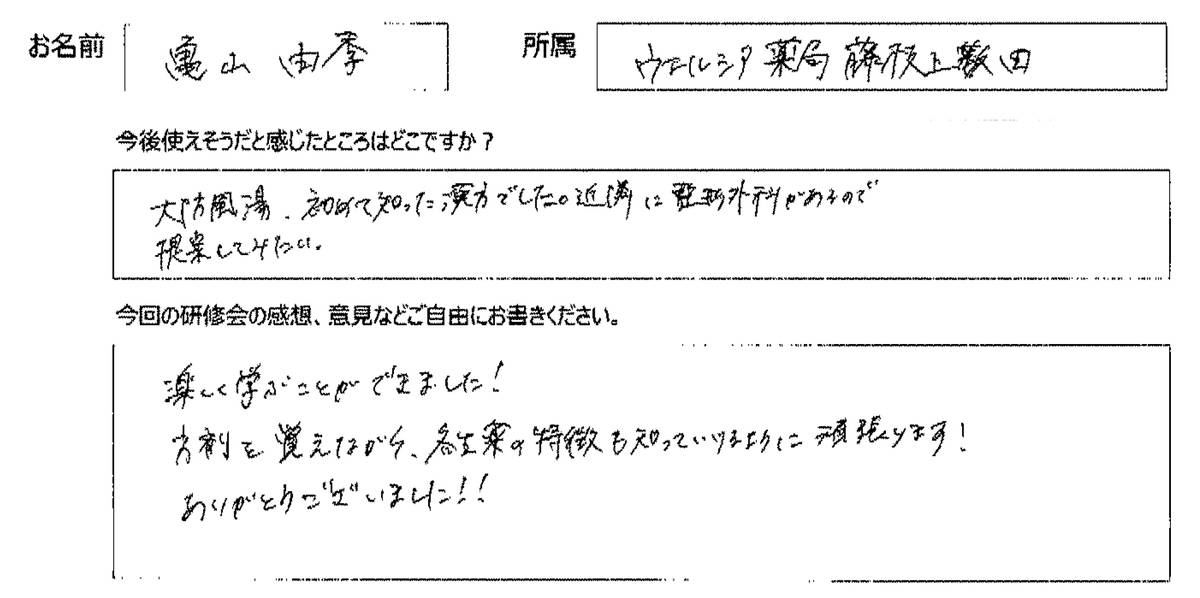 お名前 亀山 由季 所属 ウエルシア薬局藤枝上薮田
今後使えそうだと感じたところはどこですか？
大防風湯、初めて知った漢方でした。近隣に整形外科があるので
提案してみたい。
今回の研修会の感想、意見などご自由にお書きください。
楽しく学ぶことができました！
方剤を覚えながら、各生薬の特徴も知っていけるように頑張ります！
ありがとうございました！！